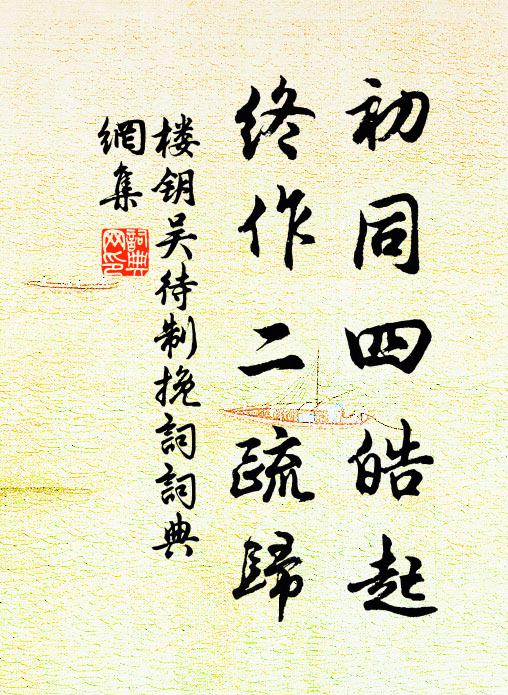 初同四皓起
终作二疏歸
楼钥吴待制挽詞詞典
網集
詞典
网印